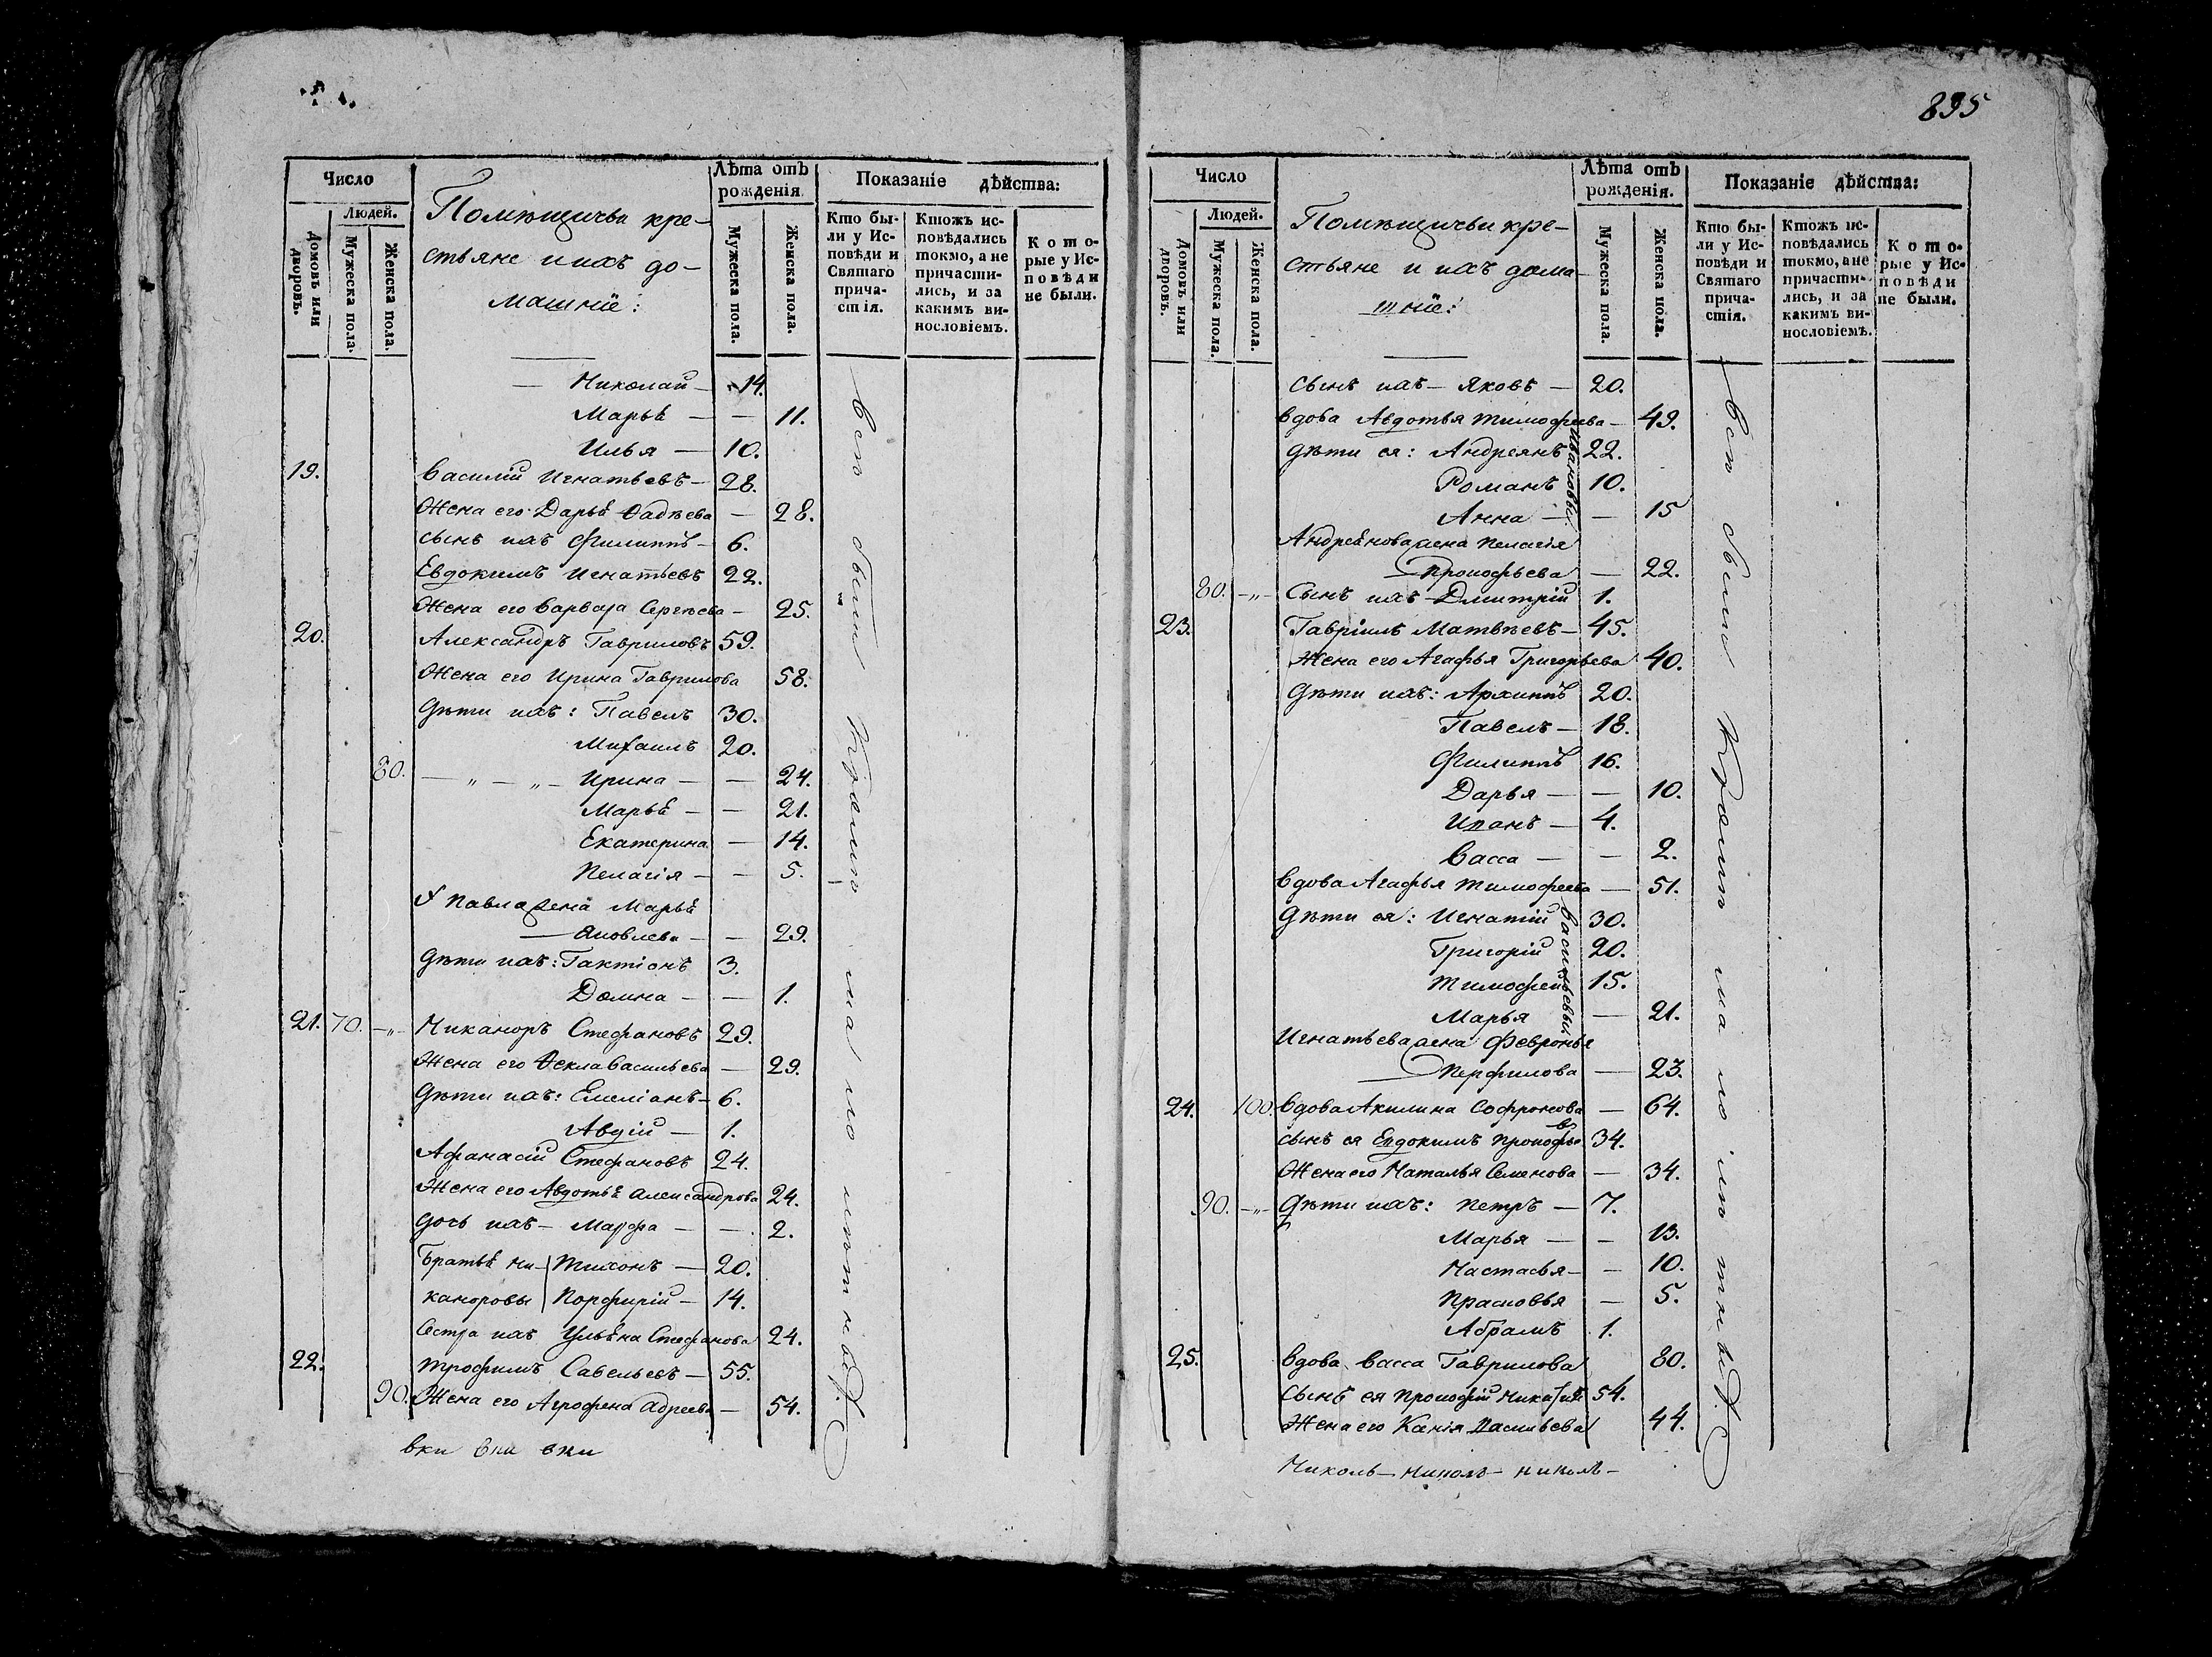 895
Число
Людей.
Домовъ или дворовъ.
Мужеска пола.
Женска пола.
Помѣщичьи кре-
стьяне и ихъ до-
машніе:
Лѣта отъ рожденія
Мужеска пола.
Женска пола.
Показаніе дѣйства:
Кто бы-
ли у Ис-
повѣди и
Святаго
прича-
стія.
Ктожъ ис-
повѣдались
токмо, а не
причасти-
лись, и за
какимъ ви-
нословіемъ.
Кото-
рые у Ис-
повѣди
не были.
— Николай — 14.
Марья — — 11.
Илья — 10.
19. Василій Игнатьевъ — 28.
Жена его Дарья Фадѣева — 28.
сынъ ихъ Филиппъ — 6.
Евдокимъ Игнатьевъ 22.
Жена его Варвара Сергѣева — 25.
20. Александръ Гавриловъ 59.
Жена его Ирина Гаврилова 58.
Дѣти ихъ: Павелъ 30.
Михаилъ 20.
80. — „ — „ — Ирина — — 24.
Марья — — 21.
Екатерина — 14.
Пелагія — — 5.
У Павла жена Марья
— Яковлева — — 29.
Дѣти ихъ: Гактіонъ 3.
Домна — — 1.
21. 70. — „ — Никаноръ Стефановъ 29.
Жена его Фекла Васильева — 29.
Дѣти ихъ: Емеліанъ — 6.
Авдій — 1.
Афанасій Стефановъ 24.
Жена его Авдотья Александрова 24.
дочь ихъ — Марфа — — 2.
Братья Ни- Тихонъ — 20.
каноровы Порфирій — 14.
Сестра ихъ Ульяна Стефанова 24.
22. Трофимъ Савельевъ — 55.
90. Жена его Агрофена Адреева — 54.
вки вки вки
Всѣ были
Число
Людей.
Домовъ или дворовъ.
Мужеска пола.
Женска пола.
Помѣщичьи кре-
стьяне и ихъ дома-
шніе:
Лѣта отъ рожденія.
Мужеска пола.
Женска пола.
Показаніе дѣйства:
Кто бы-
ли у Ис-
повѣди и
Святаго
прича-
стія.
Ктожъ ис-
повѣдались
токмо, а не
причасти-
лись, и за
какимъ ви-
нословіемъ.
Кото-
рые у Ис-
повѣди
не были.
сынъ ихъ — Яковъ — 20.
Вдова Авдотья Тимофеева — 49.
Дѣти ея: Андреянъ 22.
Ивановы:
Романъ 10.
Анна — — 15
Андреянова жена Пелагія
— Прокофьева — 22.
80. — „ — Сынъ ихъ Дмитрій 1.
23. Гавріилъ Матвѣевъ — 45.
Жена его Агафья Григорьева 40.
Дѣти ихъ: Архиппъ 20.
Павелъ — 18.
Филиппъ 16.
Дарья — — 10.
Иванъ — 4.
Васса — — 2.
Вдова Агафья Тимофеева — 51.
Дѣти ея: Игнатій 30.
Васильевы
Григорій 20.
Тимофей 15.
Марья — 21.
Игнатьева жена Февронья
— Перфилова — 23.
24. 100. Вдова Акилина Софронова — 64.
сынъ ея Евдокимъ Прокофьевъ 34.
Жена его Наталья Семенова — 34.
90. — „ — Дѣти ихъ: Петръ — 7.
Марья — — 13.
Настасья — — 10.
Прасковья — 5.
Абрамъ 1.
25. Вдова Васса Гаврилова 80.
Сынъ ея Прокофій 54.
Жена его Ксенія Васильева 44.
Николь — николь — николь —
Всѣ были